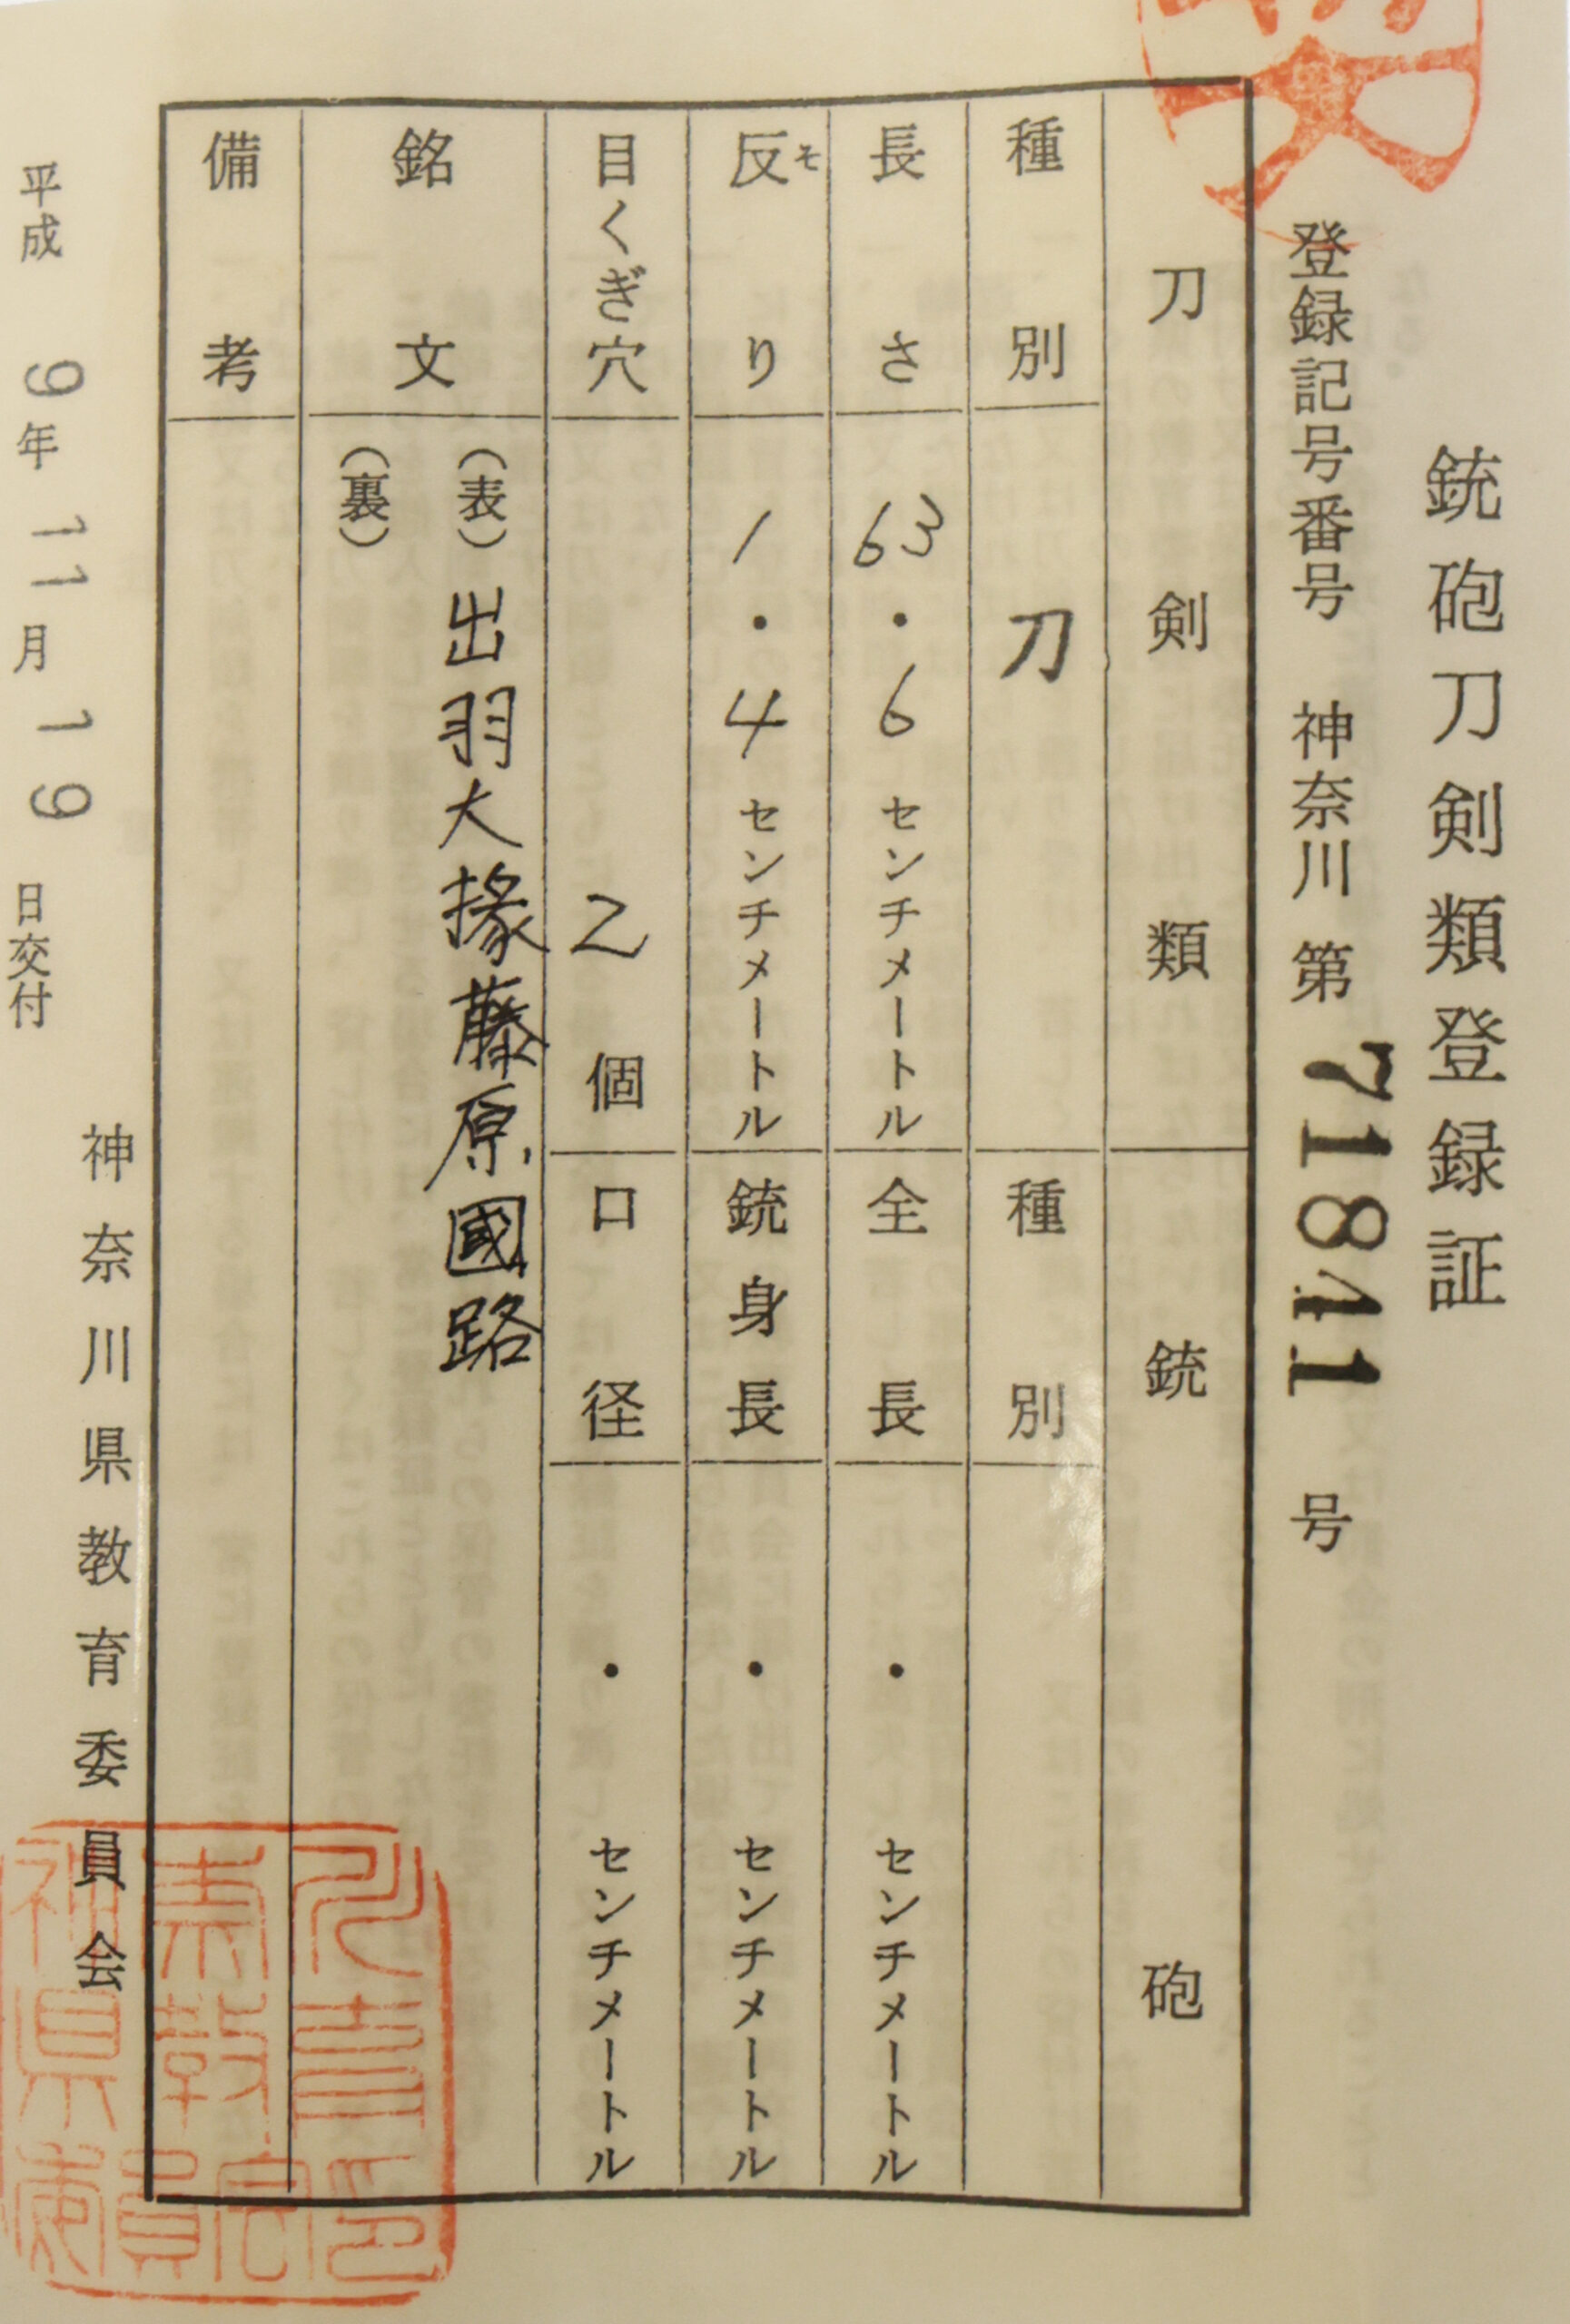 銃砲刀剣類登録証
登録記号番号 神奈川 第 71841 号
刀剣類
銃砲
種別 刀
種別
長さ 63・6 センチメートル
全長 ・ センチメートル
反り そ 1・4 センチメートル
銃身長 ・ センチメートル
目くぎ穴 2 個
口径 ・ センチメートル
銘文 (表) 出羽大掾藤原國路
(裏)
備考
平成 9年 11月 19 日交付
神奈川県教育委員会